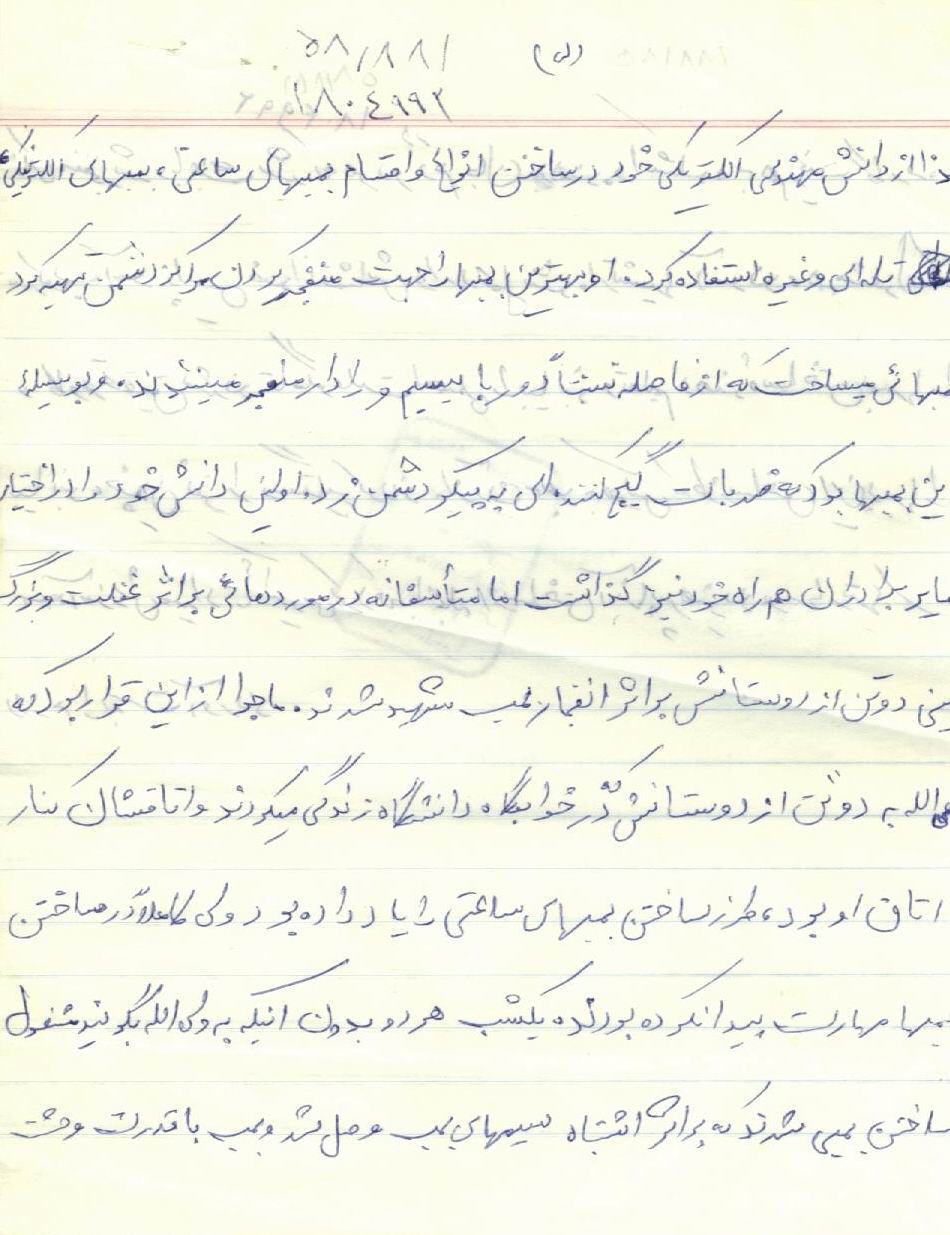 (۵)
۵۸/۸۸۱
۱۸۰۴۹۹۲
ذا از دانش مهندسی الکترونیکی خود در ساختن انواع و اقسام بمبهای ساعتی، بمبهای الکترونیکی،
تله‌ای و غیره استفاده کرد. او بهترین بمبها را جهت منفجر کردن مراکز دشمن تهیه کرد
مبهائی میساخت که از فاصله نسبتاً دور با بیسیم و رادار منفجر میشدند. و بوسیلهٔ
ین بمبها بود که ضربات گیج کننده‌ای به پیکر دشمن زد. اولین دانش خود را در اختیار
سایر برادران همراه خود نیز گذاشت اما متأسفانه در موردهائی بر اثر غفلت و
دو تن از دوستانش بر اثر انفجار بمب شهید شدند. ماجرا از این قرار بود که
لی الله به دو تن از دوستانش که در خوابگاه دانشگاه زندگی میکردند و اتاقشان کنار
اتاق او بود، طرز ساختن بمبهای ساعتی را یاد داده بود ولی کاملاً در ساختن
بمبها مهارت پیدا نکرده بودند. یکشب هر دو بدون اینکه به ولی الله بگویند مشغول
ساختن بمبی شدند که بر اثر اشتباه سیمهای بمب وصل شد و بمب با قدرت وحشت